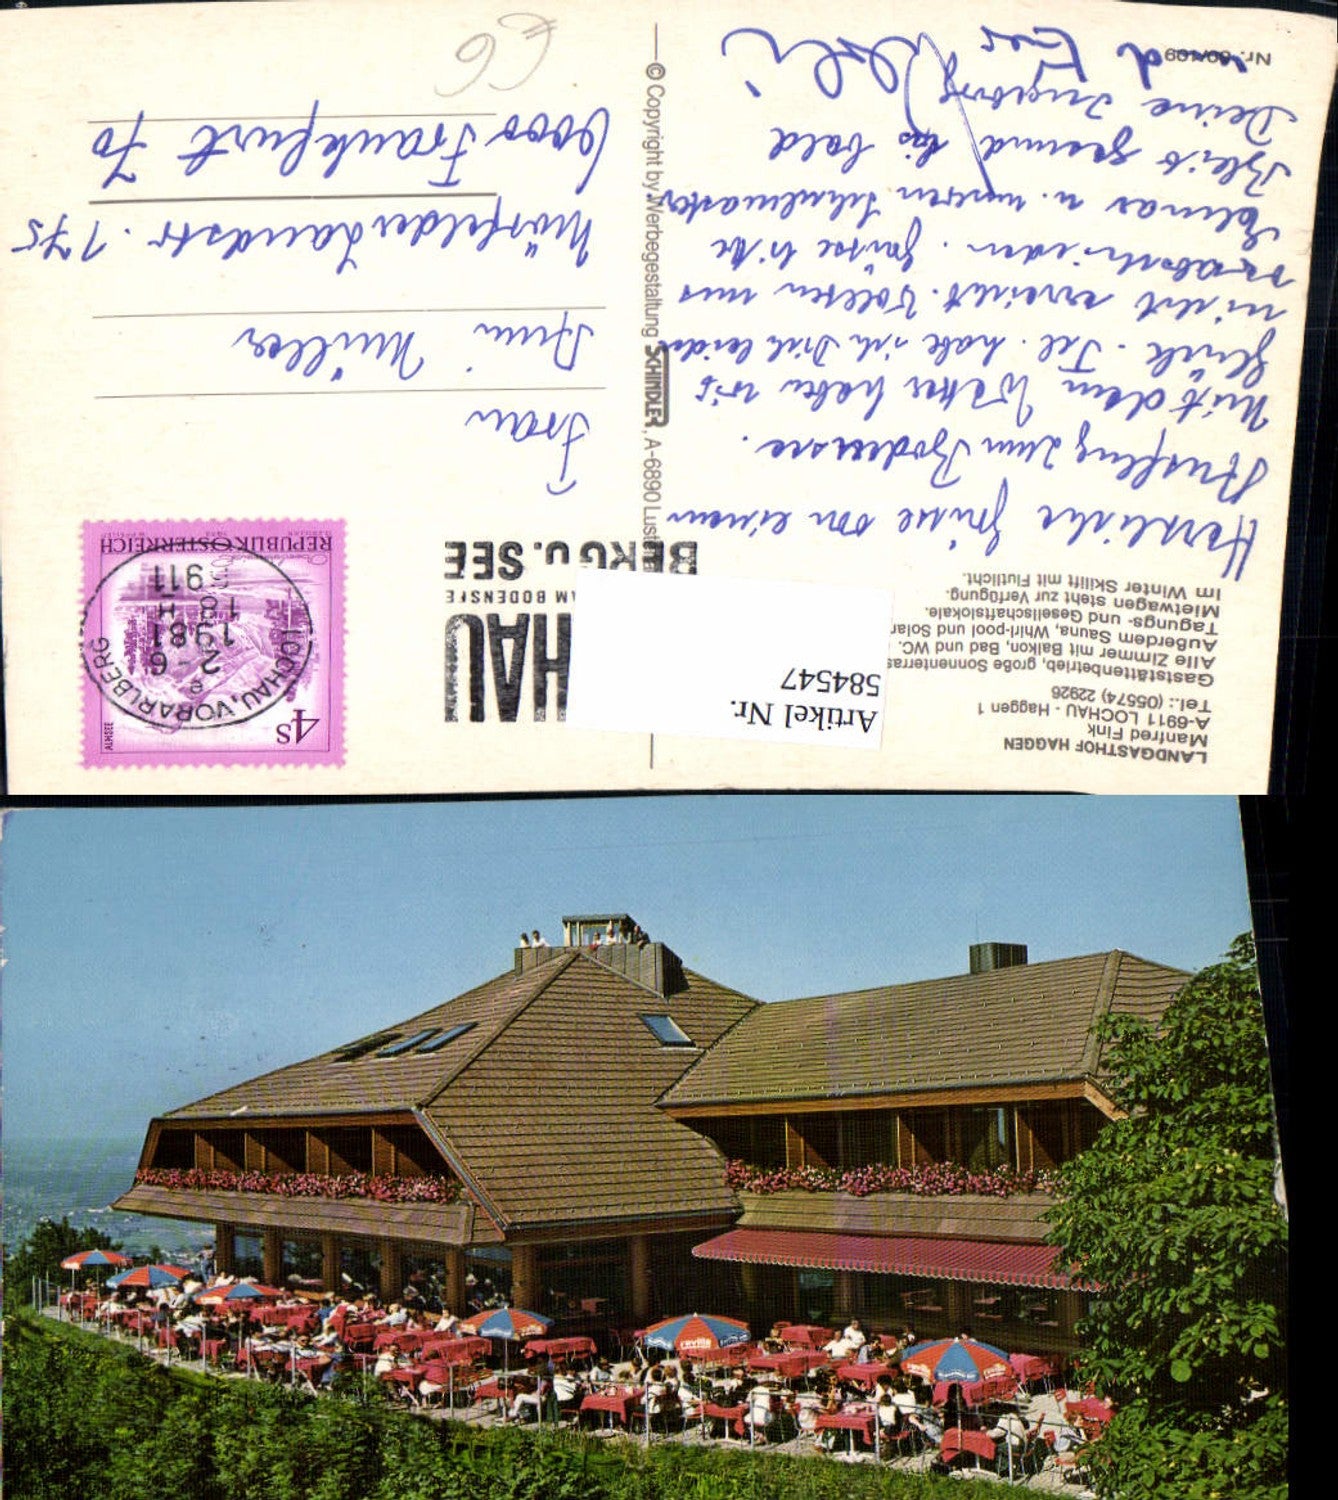 LANDGASTHOF HAGGEN
Manfred Fink
A-6911 LOCHAU - Haggen 1
Tel.: (05574) 22926
Gaststättenbetrieb, große Sonnenterras
Alle Zimmer mit Balkon, Bad und WC.
Außerdem Sauna, Whirl-pool und Solar
Tagungs- und Gesellschaftslokale.
Mietwagen steht zur Verfügung.
Im Winter Skilift mit Flutlicht.
Herzliche Grüsse von einem
Ausflug zum Bodensee.
Mit dem Wetter haben wir
Glück. Tel. habe ich Dich leider
nicht erreicht. Wollten uns
verabschieden. Grüsse bitte
u. unseren Schulmaster
Bleib gesund bis bald
Deine Ingeborg
Nr.
Artikel Nr.
584547
© Copyright by Werbegestaltung SCHINDLER, A-6890 Luste
HAU
AM BODENSEE
BERG u. SEE
4S
ALMSEE
REPUBLIK ÖSTERREICH
LOCHAU, VORARLBERG
2.-6
1981
-18H
911
Frau
Anni Müller
Mörfelder Landstr. 175
6000 Frankfurt 70
€6